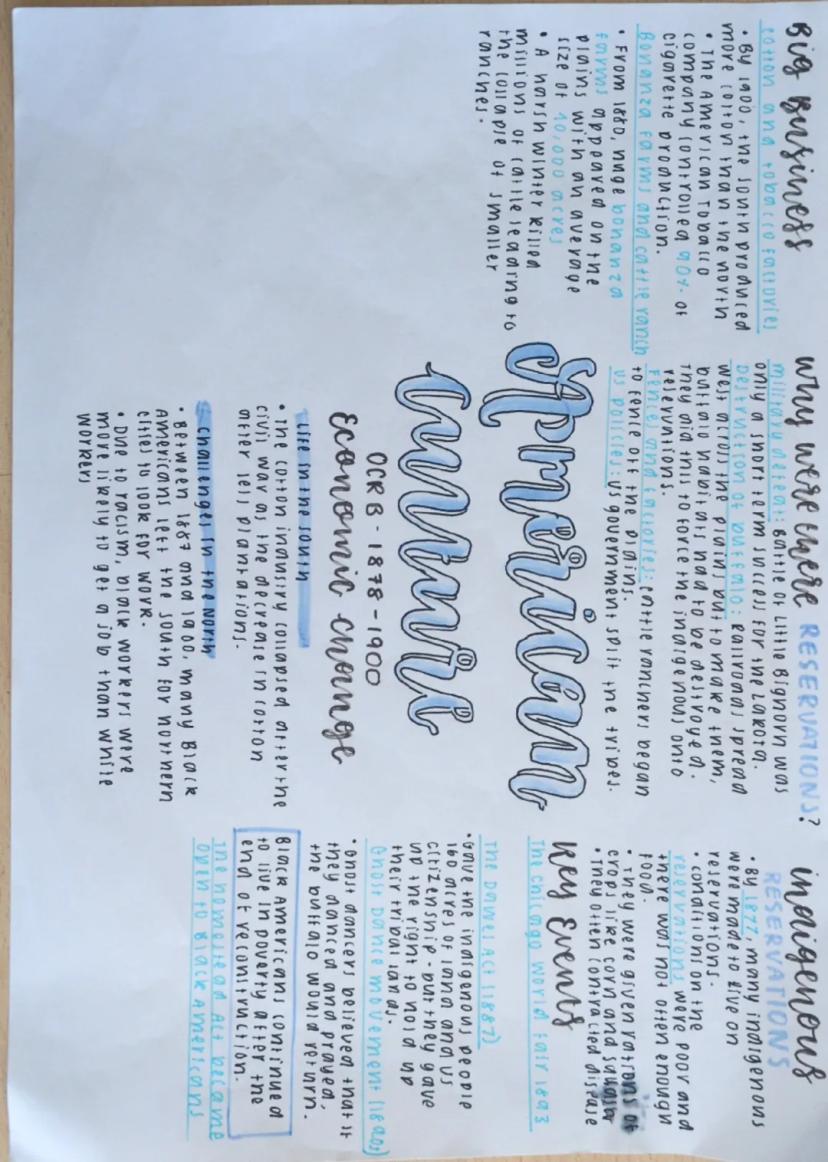 Big Business
cotton and tobacco factories
• By 1900, the south produced
more cotton than the north
• The American Tobacco
company controlled 90% of
cigarette production.
Bonanza farms and cattle ranch
• From 1880, huge bonanza
farms appeared on the
plains with an average
size of 10,000 acres
• A harsh winter killed
millions of cattle leading to
the collapse of smaller
ranches.
why were there RESERVATIONS?
military defeat: Battle of Little Bighorn was
only a short term success for the Lakota.
Destruction of buffalo: Railroads spread
west across the plain but to make them,
buffalo habitats had to be destroyed.
They did this to force the indigenous onto
reservations.
Fences and factories: cattle ranchers began
to fence off the plains.
US policies: US government split the tribes.
American
OCR B - 1878-1900
Economic change
Life in the south
• The cotton industry collapsed after the
civil war as the decrease in cotton
after less plantations.
challenges in the North
• Between 1867 and 1900, many Black
Americans left the south for northern
cities to look for work.
• Due to racism, black workers were
more likely to get a job than white
workers
indigenous
RESERVATIONS
• By 1877, many indigenous
were made to live on
reservations.
• conditions on the
reservations were poor and
there was not often enough
food.
• They were given rations of
crops like corn and
• They often contracted disease
Key Events
The Chicago World Fair 1893
The Dawes Act (1887)
• Gave the indigenous people
160 acres of land and US
citizenship - but they gave
up the right to hold up
their tribal lands.
Ghost Dance movement (1890s)
• Ghost dancers believed that if
they danced and prayed,
the buffalo would return.
Black Americans continued
to live in poverty after the
end of reconstruction.
The homestead Act became
open to Black Americans